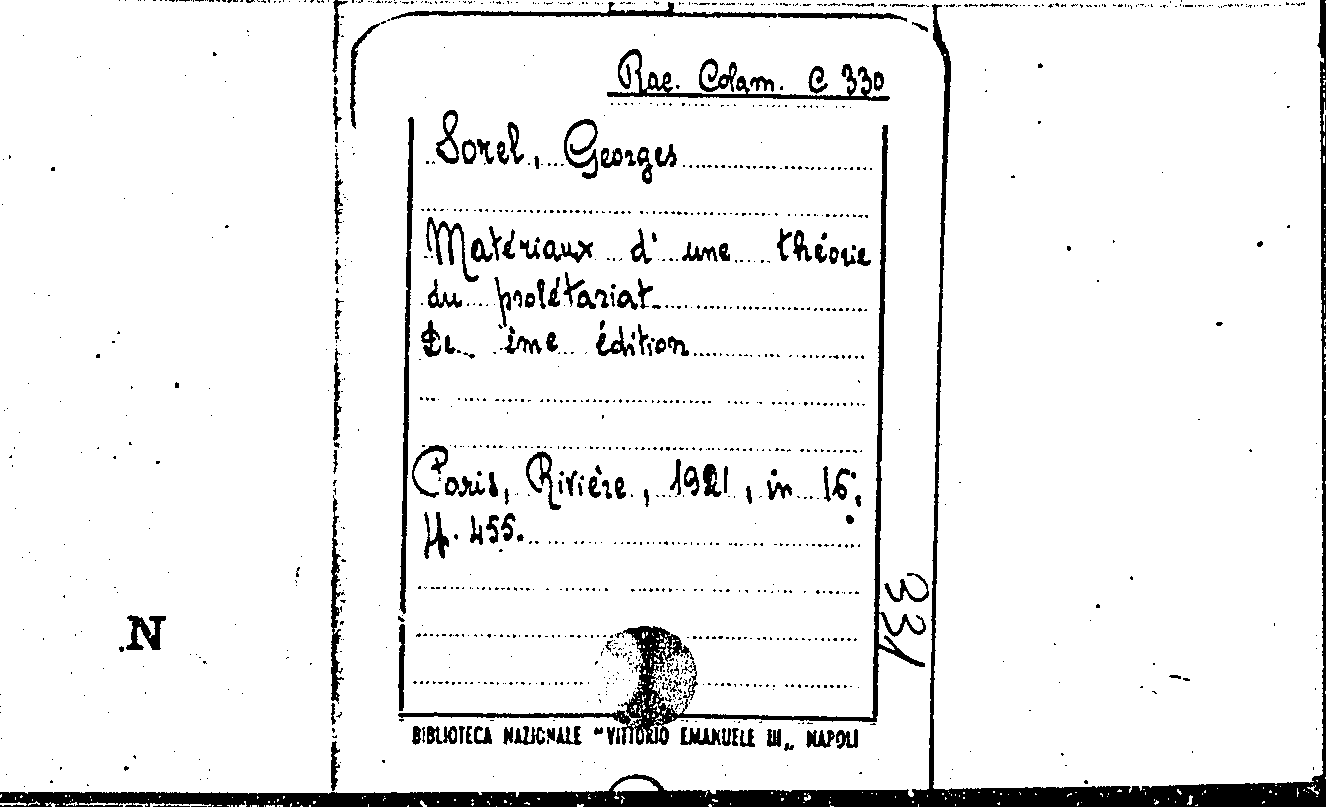 Rac. Colam. C 330
Sorel, Georges
Matériaux d'une théorie
du prolétariat
ème édition
Paris, Rivière, 1921, in 16°;
pp. 455.
331
N
BIBLIOTECA NAZIONALE "VITTORIO EMANUELE III„ NAPOLI